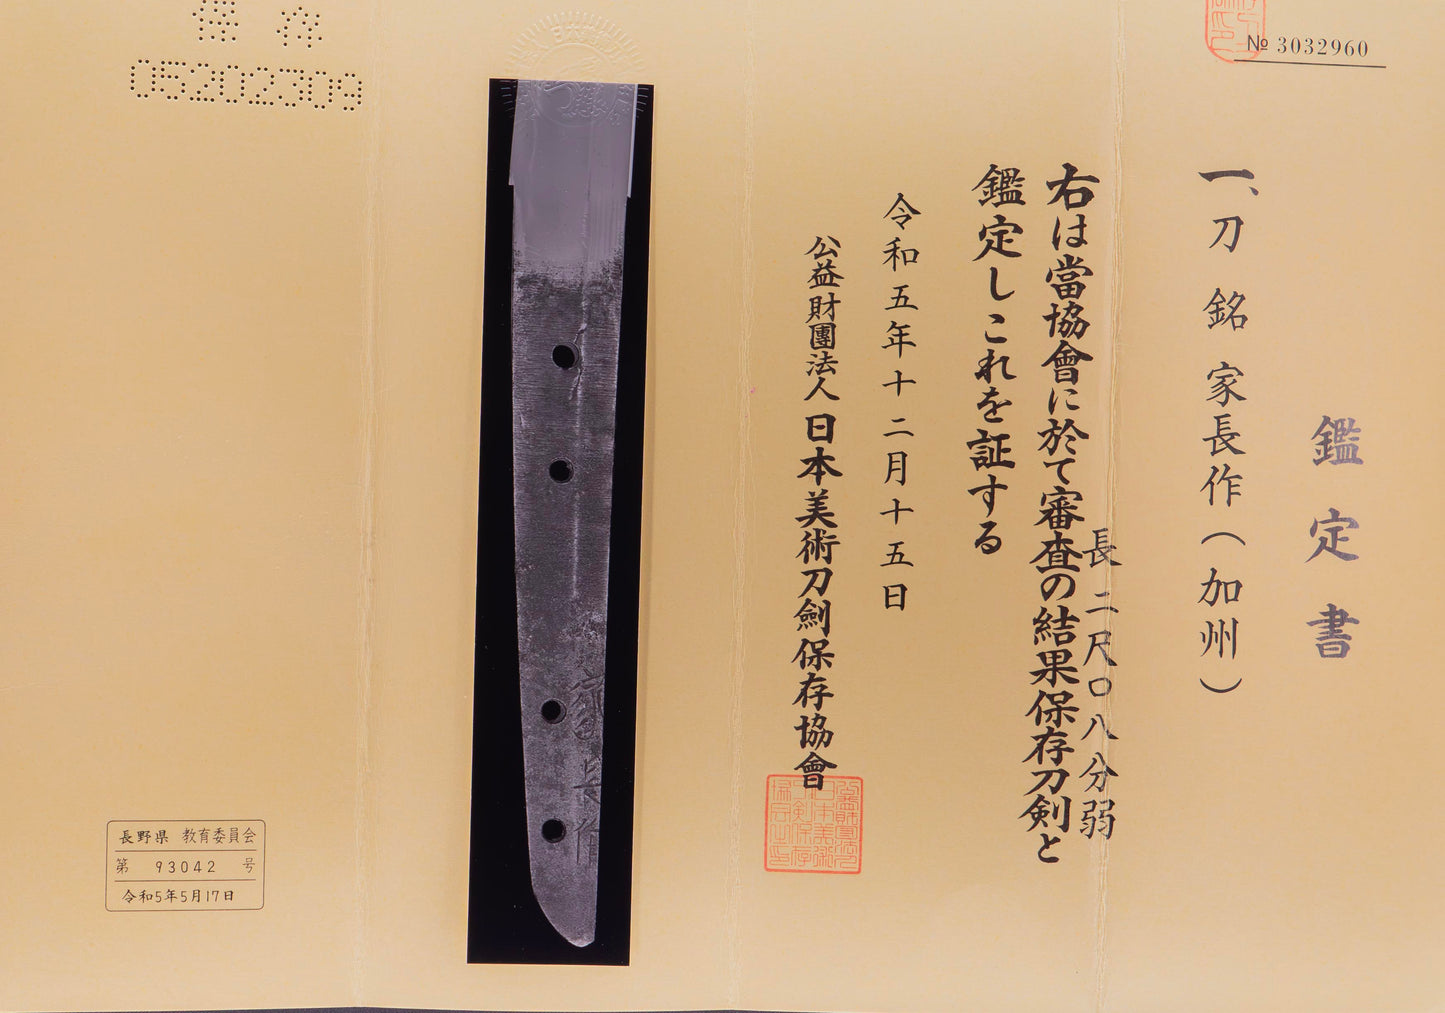 № 3032960
鑑定書
一、刀 銘 家長作（加州）
長 二尺〇八分弱
右は當協會に於て審査の結果保存刀剣と
鑑定しこれを証する
令和五年十二月十五日
公益財團法人 日本美術刀劍保存協會
家長作
保存
05202309
長野県 教育委員会
第 93042 号
令和5年5月17日